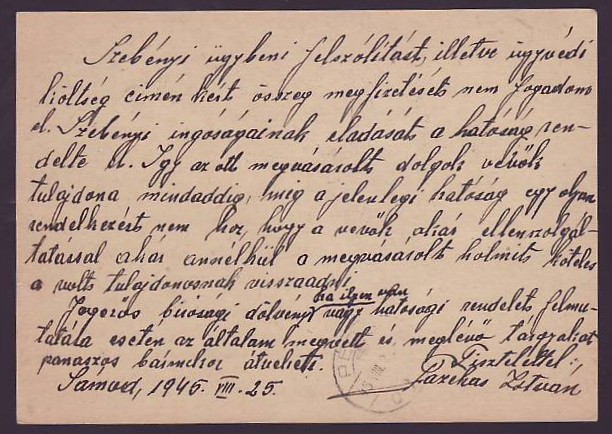 Szebényi ügybeni felszólítást, illetve ügyvédi
költség címén kért összeg megfizetését nem fogadom
el. Szebényi ingóságainak eladását a hatóság ren-
delte el. Igy az ott megvásárolt dolgok vevők
tulajdona mindaddig, mig a jelenlegi hatóság egy olyan
rendelkezést nem hoz, hogy a vevők akár ellenszolgál-
tatással akár annélkül a megvásárolt holmit köteles
a volt tulajdonosnak visszaadni.
ha ilyen van
Jogerős bírósági dölvény vagy hatósági rendelet felmu-
tatása esetén az általam megvett és meglévő tárgyakat
panaszos bármikor átveheti.
Tisztelettel:
Sámod, 1945. VIII. 25. Fazekas István